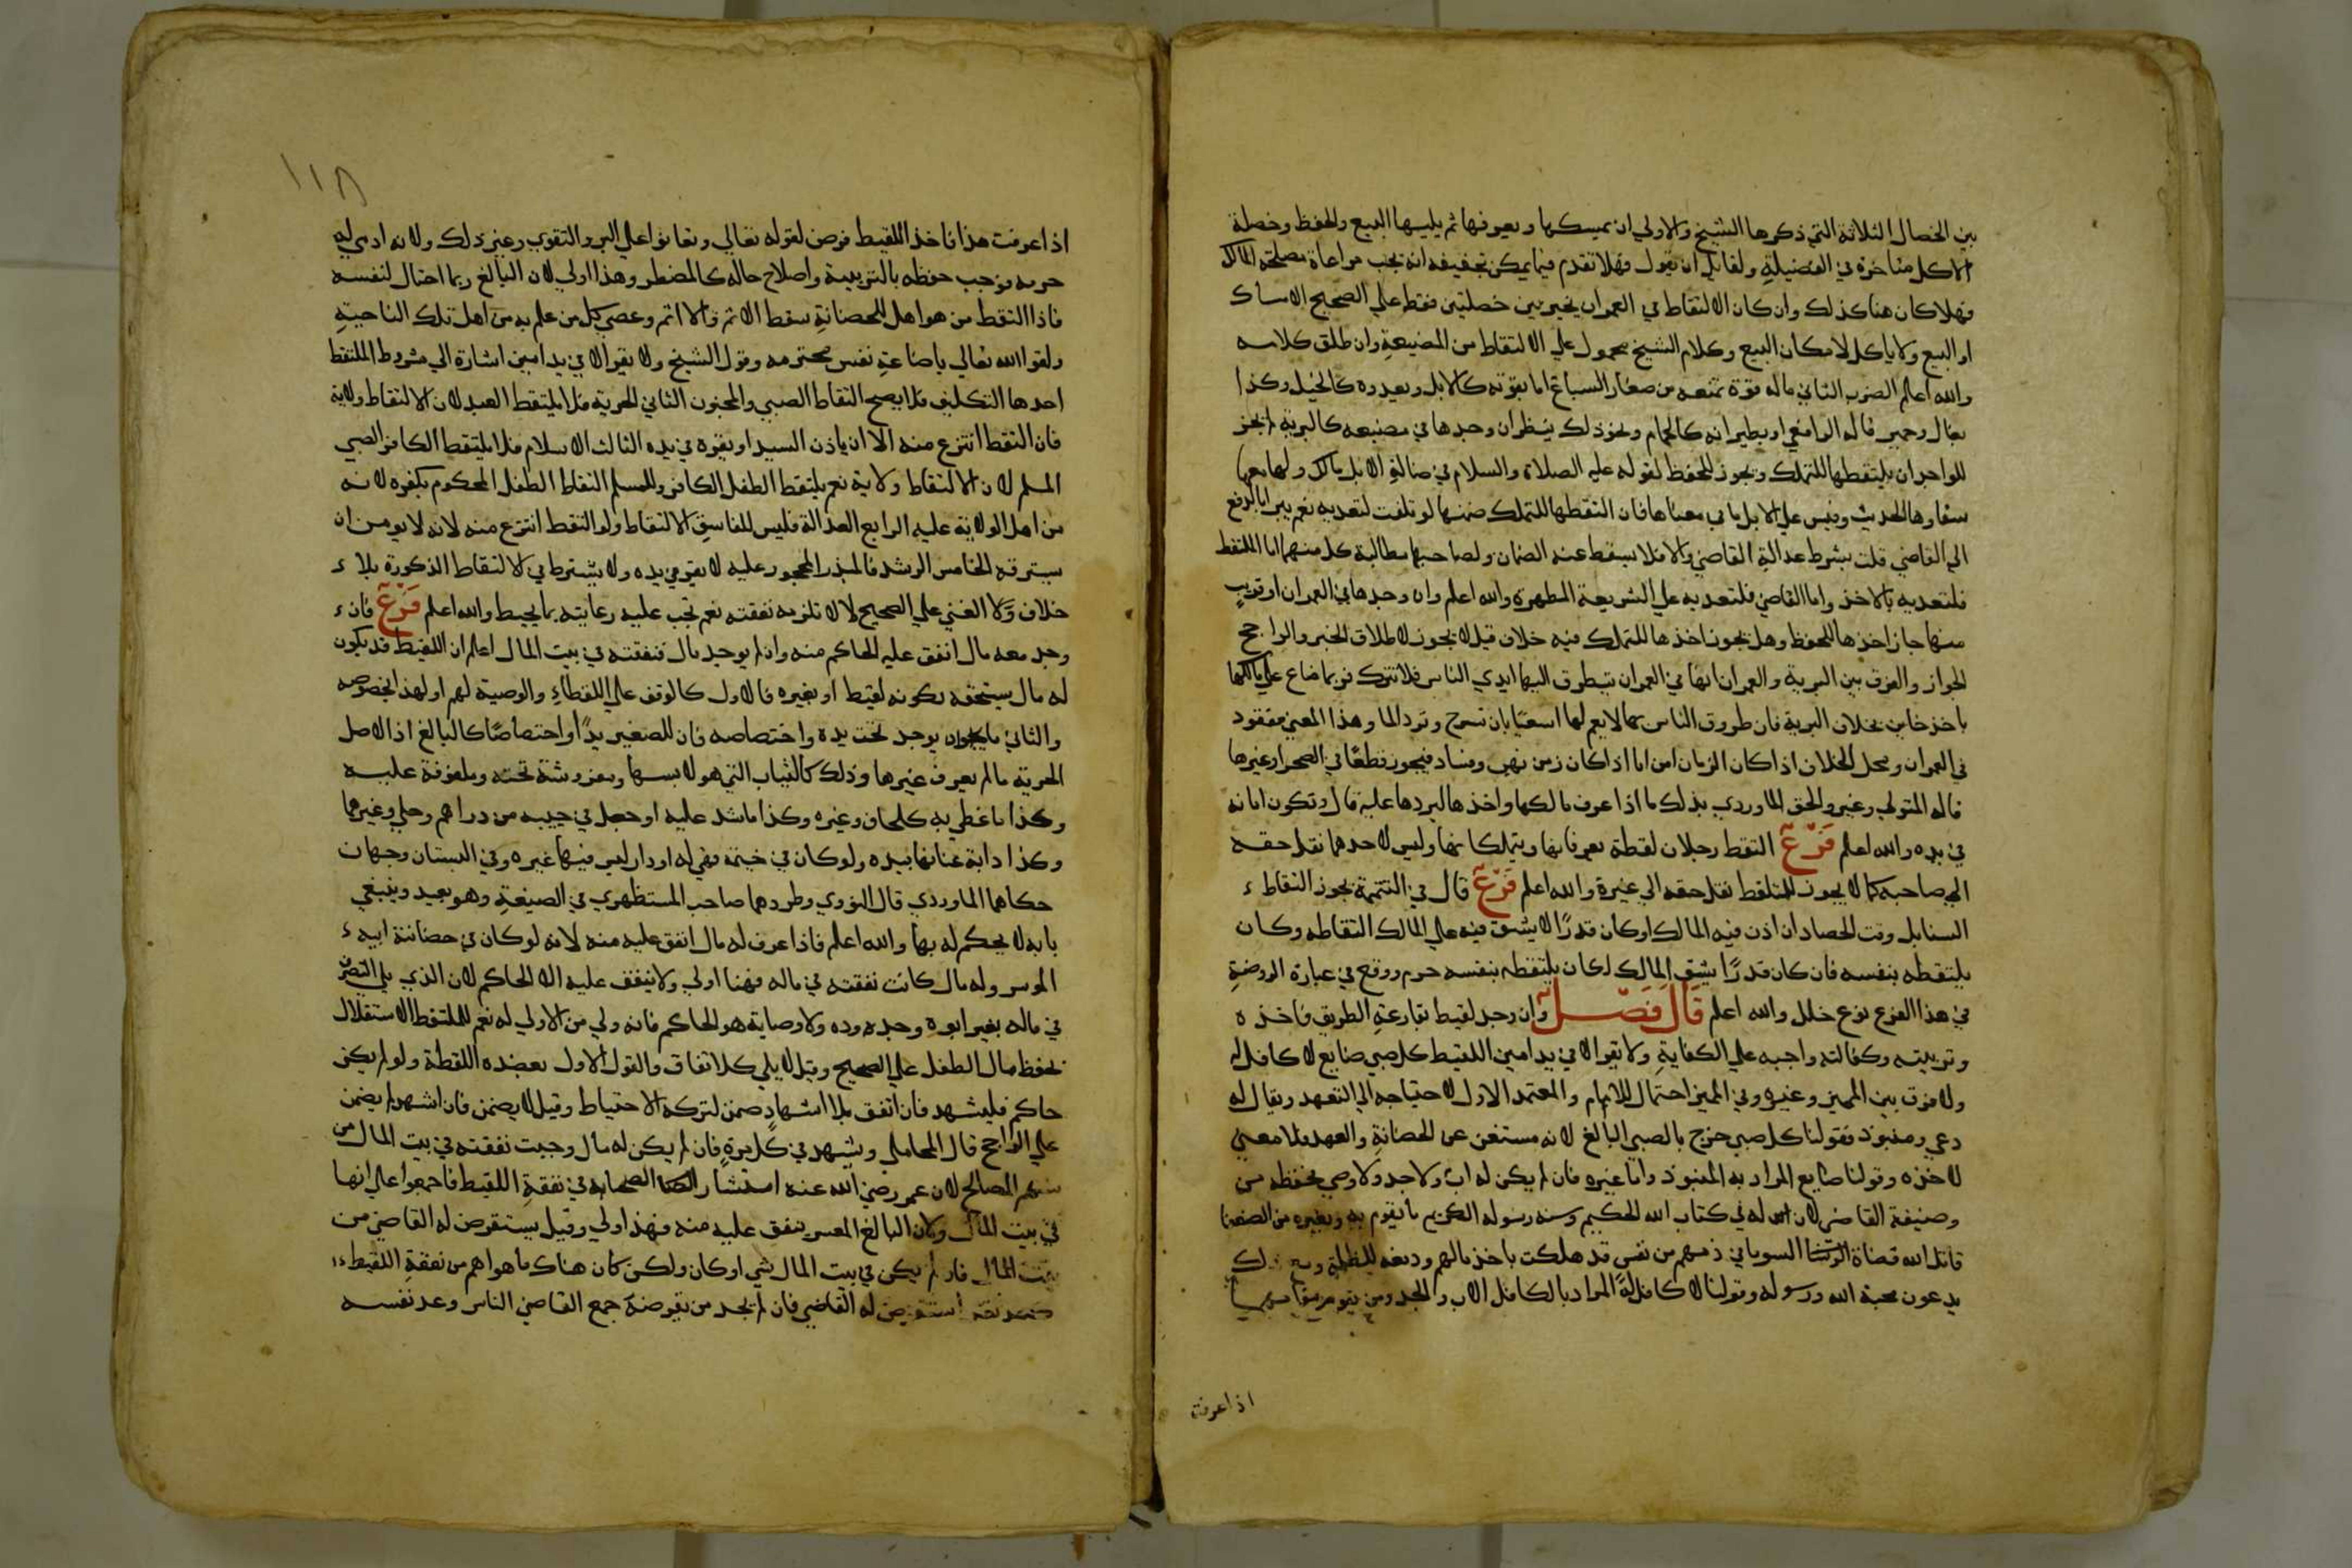 بين الخصال الثلاثة التي ذكرها الشيخ والاولي ان يمسكها ويعرفها ثم يليها البيع والحفظ وخصلة
الاكل متاخرة في الفضيلة ولقايل ان يقول فهلا تقدم فيما يمكن تجفيفه انه يجب مراعاة مصلحة المالك
فهلا كان هنا كذلك وان كان الالتقاط في العمران يخير بين خصلتين فقط علي الصحيح الامساك
او البيع ولا ياكل لامكان البيع وكلام الشيخ محمول علي الالتقاط من المضيعة وان طلق كلامه
والله اعلم الضرب الثاني ماله قوة تمنعه من صغار السباع اما بقوته كالابل وبعيره كالخيل وكذا
بغال وحمير قاله الرافعي او بطيرانه كالحمام ونحو ذلك ينظر ان وجدها في مضيعه كالبرية لم يجز
للواجد ان يلتقطها للتملك ويجوز للحفظ لقوله عليه الصلاة والسلام في ضالة الابل مالك ولها معها
سقاوها الحديث وقيس علي الابل ما في معناها فان التقطها للتملك ضمنها لو تلفت لتعديه نعم يبرا بالدفع
الي القاضي قلت بشرط عدالة القاضي والا فلا يسقط عنه الضمان ولصاحبها مطالبة كل منهما اما الملتقط
فلتعديه بالاخذ واما القاضي فلتعديه علي الشريعة المطهرة والله اعلم وان وجدها في العمران او قريب
منها جاز اخذها للحفظ وهل يجوز اخذها للتملك فيه خلاف قيل لا يجوز لاطلاق الخبر والراجح
الجواز والفرق بين البرية والعمران انها في العمران يتطرق اليها ايدي الناس فلا تترك فربما ضاع علي مالكها
باخذ خاين بخلاف البرية فان طروق الناس بها لا يعم لها استغنا بان تسرح وترد الما وهذا المعني مفقود
في العمران ومحل الخلاف اذا كان الزمان امن اما اذا كان زمن نهب وفساد فيجوز قطعا في الصحرا وغيرها
قاله المتولي وغيره والحق الماوردي بذلك ما اذا عرف مالكها واخذها ليردها عليه قال وتكون امانة
في يده والله اعلم فرع التقط رجلان لقطة يعرفانها ويتملكانها وليس لاحدهما نقل حقه
الي صاحبه كما لا يجوز للملتقط نقل حقه الي غيره والله اعلم فرع قال في التتمة يجوز التقاط
السنابل وقت الحصاد ان اذن فيه المالك او كان قدرا لا يشق فيه علي المالك التقاطه وكان
يلتقطه بنفسه فان كان قدرا يشق المالك لكان يلتقطه بنفسه حرم ووقع في عبارة الروضة
في هذا الفرع نوع خلل والله اعلم قال فصل وان وجد لقيط بقارعة الطريق فاخذه
وتربيته وكفالته واجبه علي الكفاية ولا يقر الا في يد امين اللقيط كل صبي ضايع لا كافل له
ولا فرق بين المميز وغيره وفي المميز احتمال للامام والمعتمد الاول لاحتياجه الي التعهد ويقال له
دعي ومنبوذ فقولنا كل صبي خرج بالصبي البالغ لانه مستغن عن الحضانة والعهد فلا معني
لاخذه وقولنا ضايع المراد به المنبوذ واما غيره فان لم يكن له اب ولا جد ولا وصي فحفظه من
وضيفة القاضي لان له في كتاب الله الحكيم وسنة رسوله الكريم ما يقوم به وبغيره من الضعفا
قاتل الله قضاة الرشا السو ما في ذممهم من نفس قد هلكت باخذ مالهم ودفعه للظلمة
يدعون محبة الله ورسوله وقولنا لا كافل له المراد بالكافل الاب والجد ومن يقوم مقامهما
اذا عرفت
١١٨
اذا عرفت هذا فاخذ اللقيط فرض لقوله تعالي وتعاونوا علي البر والتقوي وغير ذلك ولانه ادمي له
حرمه فوجب حفظه بالتربية واصلاح حاله كالمضطر وهذا اولي لان البالغ ربما احتال لنفسه
فاذا التقط من هو اهل للحضانة سقط الاثم والا اثم وعصي كل من علم به من اهل تلك الناحية
ولقوا الله تعالي باضاعة نفس محترمه وقول الشيخ ولا يقر الا في يد امين اشارة الي شروط الملتقط
احدها التكليف فلا يصح التقاط الصبي والمجنون الثاني الحرية فلا يلتقط العبد لان الالتقاط ولاية
فان التقط انتزع منه الا ان ياذن السيد او يقره في يده الثالث الاسلام فلا يلتقط الكافر الصبي
المسلم لان الالتقاط ولاية نعم يلتقط الطفل الكافر وللمسلم التقاط الطفل المحكوم بكفره لانه
من اهل الولاية عليه الرابع العدالة فليس للفاسق الالتقاط ولو التقط انتزع منه لانه لا يومن ان
يسترقه الخامس الرشد فالمبذر المحجور عليه لا يقر في يده ولا يشترط في الالتقاط الذكورة بلا
خلاف ولا الغني علي الصحيح لانه لا تلزمه نفقته نعم تجب عليه رعايته بما يحيط والله اعلم فرع فان
وجد معه مال انفق عليه الحاكم منه وان لم يوجد مال فنفقته في بيت المال اعلم ان اللقيط قد يكون
له مال يستحقه بكونه لقيط او بغيره فالاول كالوقف علي اللقطاء والوصية لهم او لهذا بخصوصه
والثاني ما يوجد تحت يده واختصاصه فان للصغير يدا واختصاصا كالبالغ اذ الاصل
الحرية ما لم يعرف غيرها وذلك كالثياب التي هو لابسها ومفروشة تحته وملفوفة عليه
وكذا ما غطي به كلحاف وغيره وكذا ما شد عليه او جعل في جيبه من دراهم وحلي وغيرهما
وكذا دابة عنانها بيده ولو كان في خيمة فهي له او دار ليس فيها غيره وفي البستان وجهان
حكاهما الماوردي قال النووي وطردهما صاحب المستظهري في الضيعة وهو بعيد وينبغي
بانه لا يحكم له بها والله اعلم فاذا عرف له مال انفق عليه منه لانه لو كان في حضانة ابيه
الموسر وله مال كانت نفقته في ماله فهنا اولي ولا ينفق عليه الا الحاكم لان الذي يلي التصرف
في ماله بغير ابوة وجدوده ولا وصاية هو الحاكم فانه ولي من لا ولي له نعم للملتقط الاستقلال
بحفظ مال الطفل علي الصحيح وقيل لا يلي كالاتفاق والقول الاول بعضده اللقطة ولو لم يكن
حاكم فليشهد فان انفق بلا اشهاد ضمن لتركه الاحتياط وقيل لا يضمن فان اشهد لم يضمن
علي الراجح قال المحاملي ويشهد في كل مرة فان لم يكن له مال وجبت نفقته في بيت المال من
سهم المصالح لان عمر رضي الله عنه استشار الصحابة في نفقة اللقيط فاجمعوا علي انها
في بيت المال ولان البالغ المعسر ينفق عليه منه فهذا اولي وقيل يستقرض له القاضي من
بيت المال فان لم يكن في بيت المال شي او كان ولكن كان هناك ما هو اهم من نفقة اللقيط
استقرض له القاضي فان لم يجد من يقرضه جمع القاضي الناس وعد نفسه